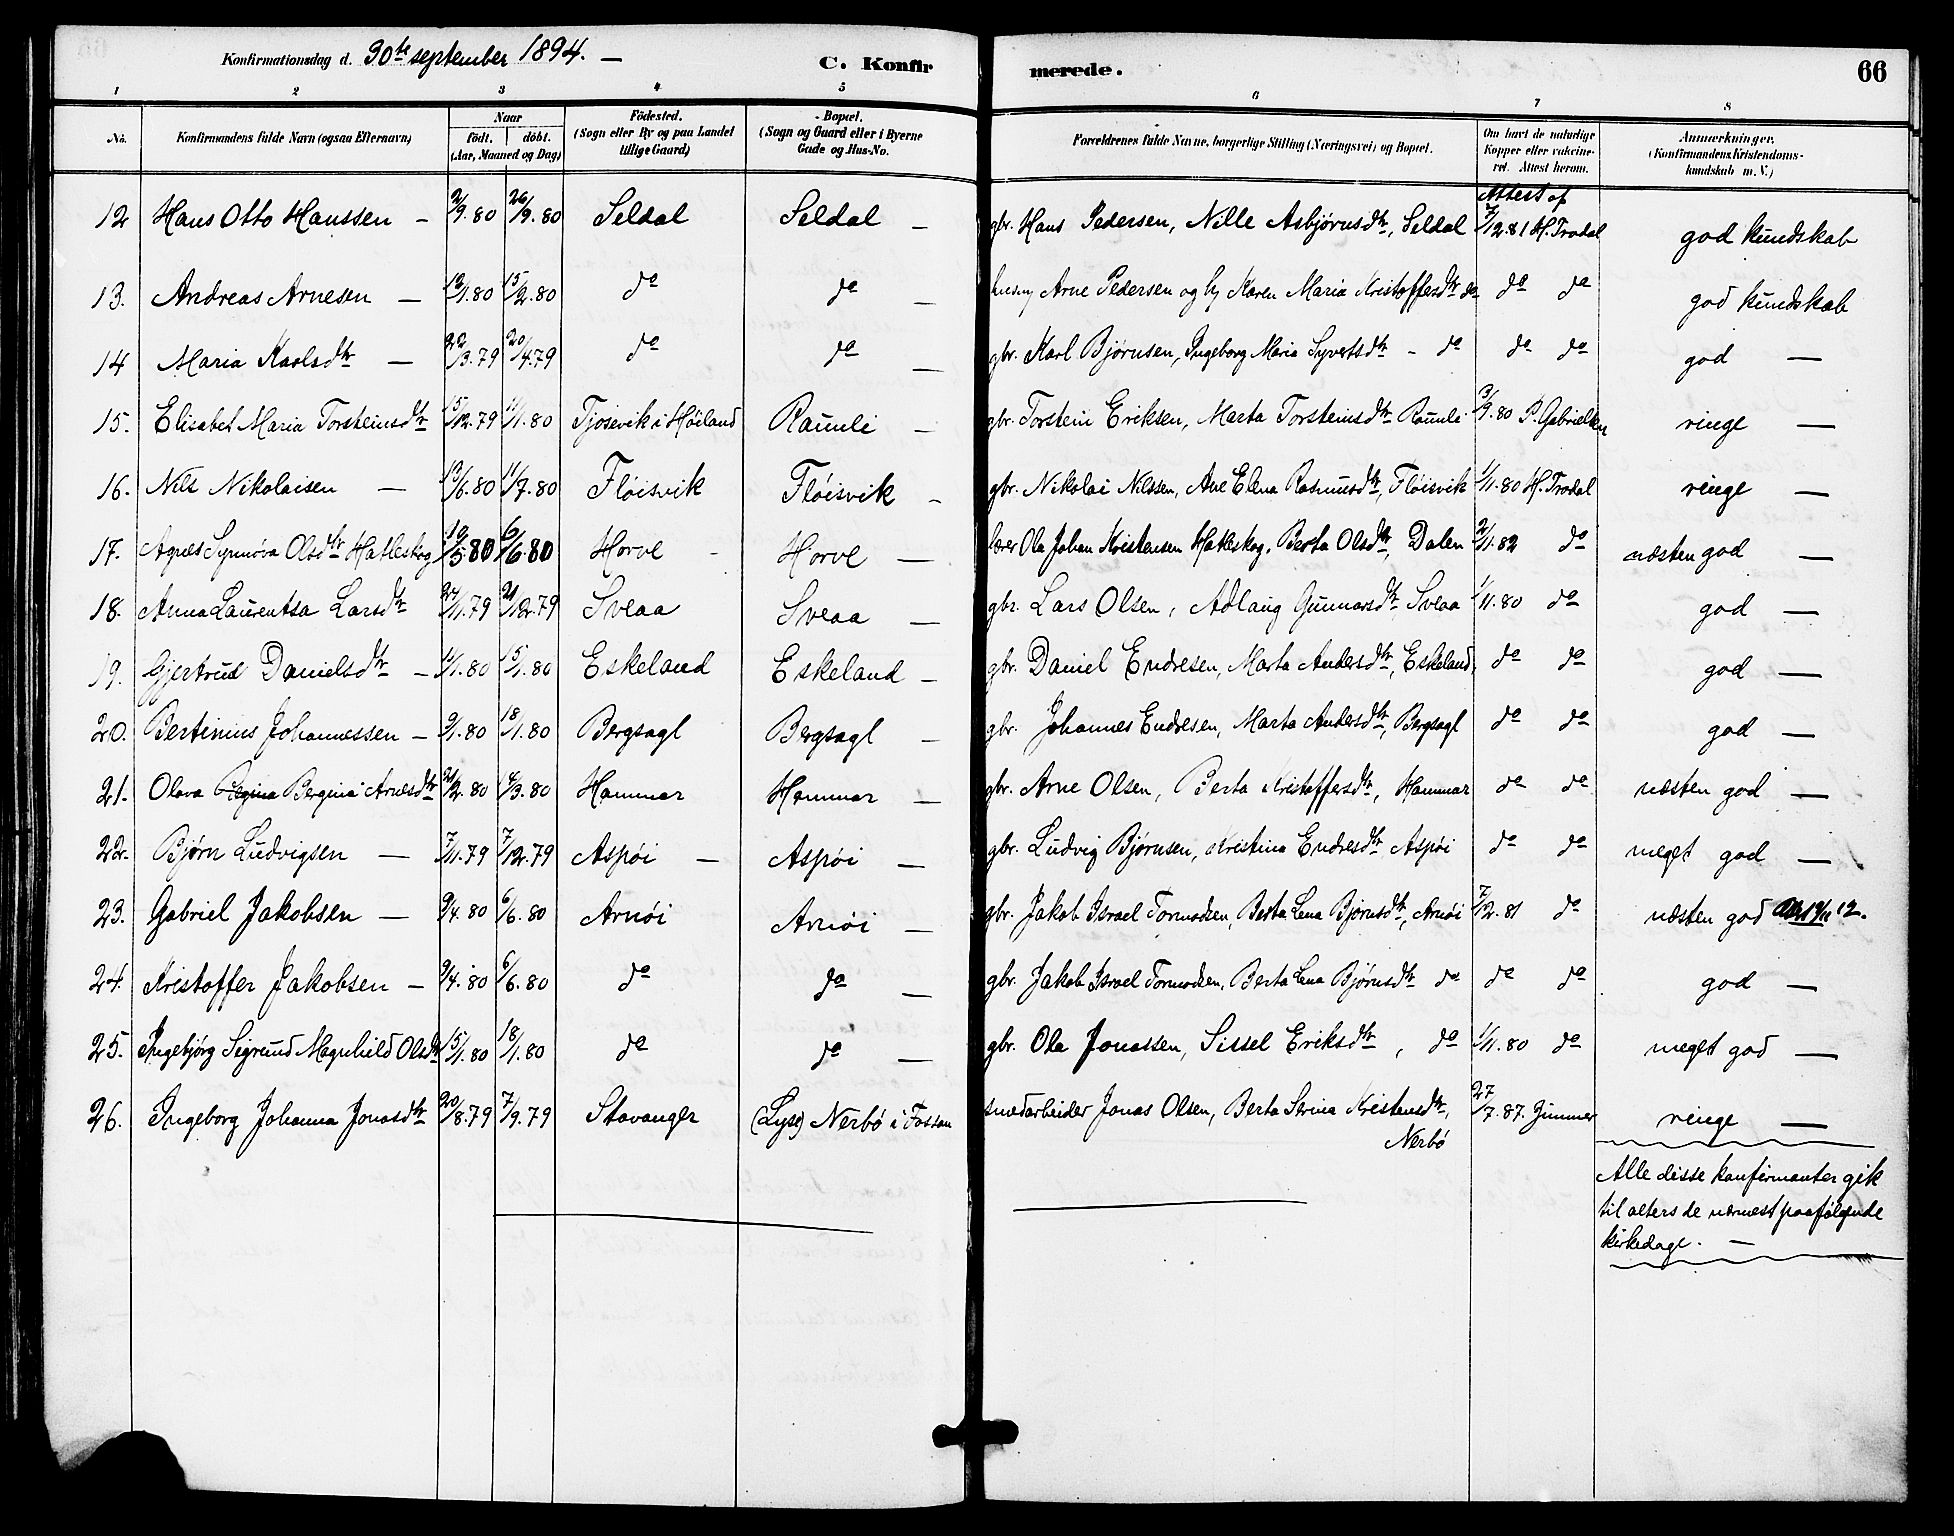 Konfirmationsdag d. 30te september 1894. — C. Konfirmerede. 66
1 2 3 4 5 6 7 8
No. Konfirmandens fulde Navn (ogsaa Efternavn) Naar födt. döbt. (Aar, Maaned og Dag) Födested. (Sogn eller By og paa Landet tillige Gaard) Bopæl. (Sogn og Gaard eller i Byerne Gade og Hus-No. Forældrenes fulde Navne, borgerlige Stilling (Næringsvei) og Bopæl. Om havt de naturlige Kopper eller vakcineret. Attest herom. Anmærkninger. (Konfirmandens Kristendomskundskab m. V.)
12 Hans Otto Hanssen — 2/9.80 26/9.80 Seldal Seldal — gbr. Hans Pedersen, Nille Asbjørnsdtr, Seldal Attest af 7/12.81 H. Trodal god kundskab
13. Andreas Arnesen — 13/1.80 15/2.80 do do — husm Arne Pedersen og h. Karen Maria Kristoffersdtr do do do god kundskab
14 Maria Karlsdtr — 22/3.79 20/4.79 do do — gbr. Karl Bjørnsen, Ingeborg Maria Syvertsdtr - do do do god —
15. Elisabet Maria Torsteinsdtr 15/12.79 11/1.80 Tjosevik i Høiland Raunli — gbr. Torstein Eriksen, Marta Torsteinsdtr Raunli 3/9.80 P. Gabrielsen ringe —
16. Nils Nikolaisen — 13/6.80 11/7.80 Fløisvik Fløisvik — gbr. Nikolai Nilssen, Ane Elena Rasmusdtr, Fløisvik 1/11.80 H. Trodal ringe —
17. Agnes Synnøva Olsdtr Hatleskog 10/5 80 6/6 80 Horve - Horve — lærer Ola Johan Kristensen Hatleskog, Berta Olsdtr, Dalen 2/11.82 do næsten god —
18. Anna Laurentsa Larsdtr 24/11.79 21/12.79 Sveaa Sveaa — gbr. Lars Olsen, Adlaug Gunnarsdtr Sveaa 1/11.80 do god —
19. Gjertrud Danielsdtr — 11/1.80 15/1.80 Eskeland Eskeland — gbr. Daniel Endresen, Marta Andersdtr, Eskeland, do do god —
20. Bertinius Johannessen — 9/1.80 18/1.80 Bergsagl Bergsagl — gbr. Johannes Endresen, Marta Andersdtr, Bergsagl do do god —
21. Olava Regina Bergina Arnesdtr 21/2.80 4/3.80 Hammar Hammar — gbr. Arne Olsen, Berta Kristoffersdtr, Hammar do do næsten god —
22. Bjørn Ludvigsen — 7/11.79 7/12.79 Aspøi — Aspøi — gbr. Ludvig Bjørnsen, Kristina Endresdtr Aspøi do do meget god —
23. Gabriel Jakobsen — 9/4.80 6/6.80 Arnøi Arnøi — gbr. Jakob Israel Tormodsen, Berta Lena Bjørnsdtr, Arnøi 7/12.81 do næsten god 12.
24. Kristoffer Jakobsen — 9/4.80 6/6.80 do do — gbr. Jakob Israel Tormodsen, Berta Lena Bjørnsdtr do do do god —
25. Ingebjørg Sigrund Magnhild Olsdtr 15/1.80 18/1.80 do do — gbr. Ola Jonassen, Sissel Eriksdtr, do 1/11.80 do meget god —
26. Ingeborg Johanna Jonasdtr 20/8.79 7/9.79 Stavanger (Lyse) Nerbø i Fossan smedarbeider Jonas Olsen, Berta Serina Kristensdtr, Nerbø 27/7.87. Zimmer ringe —
Alle disse konfirmanter gik
til alters de nærmest paafølgende
kirkedage. —